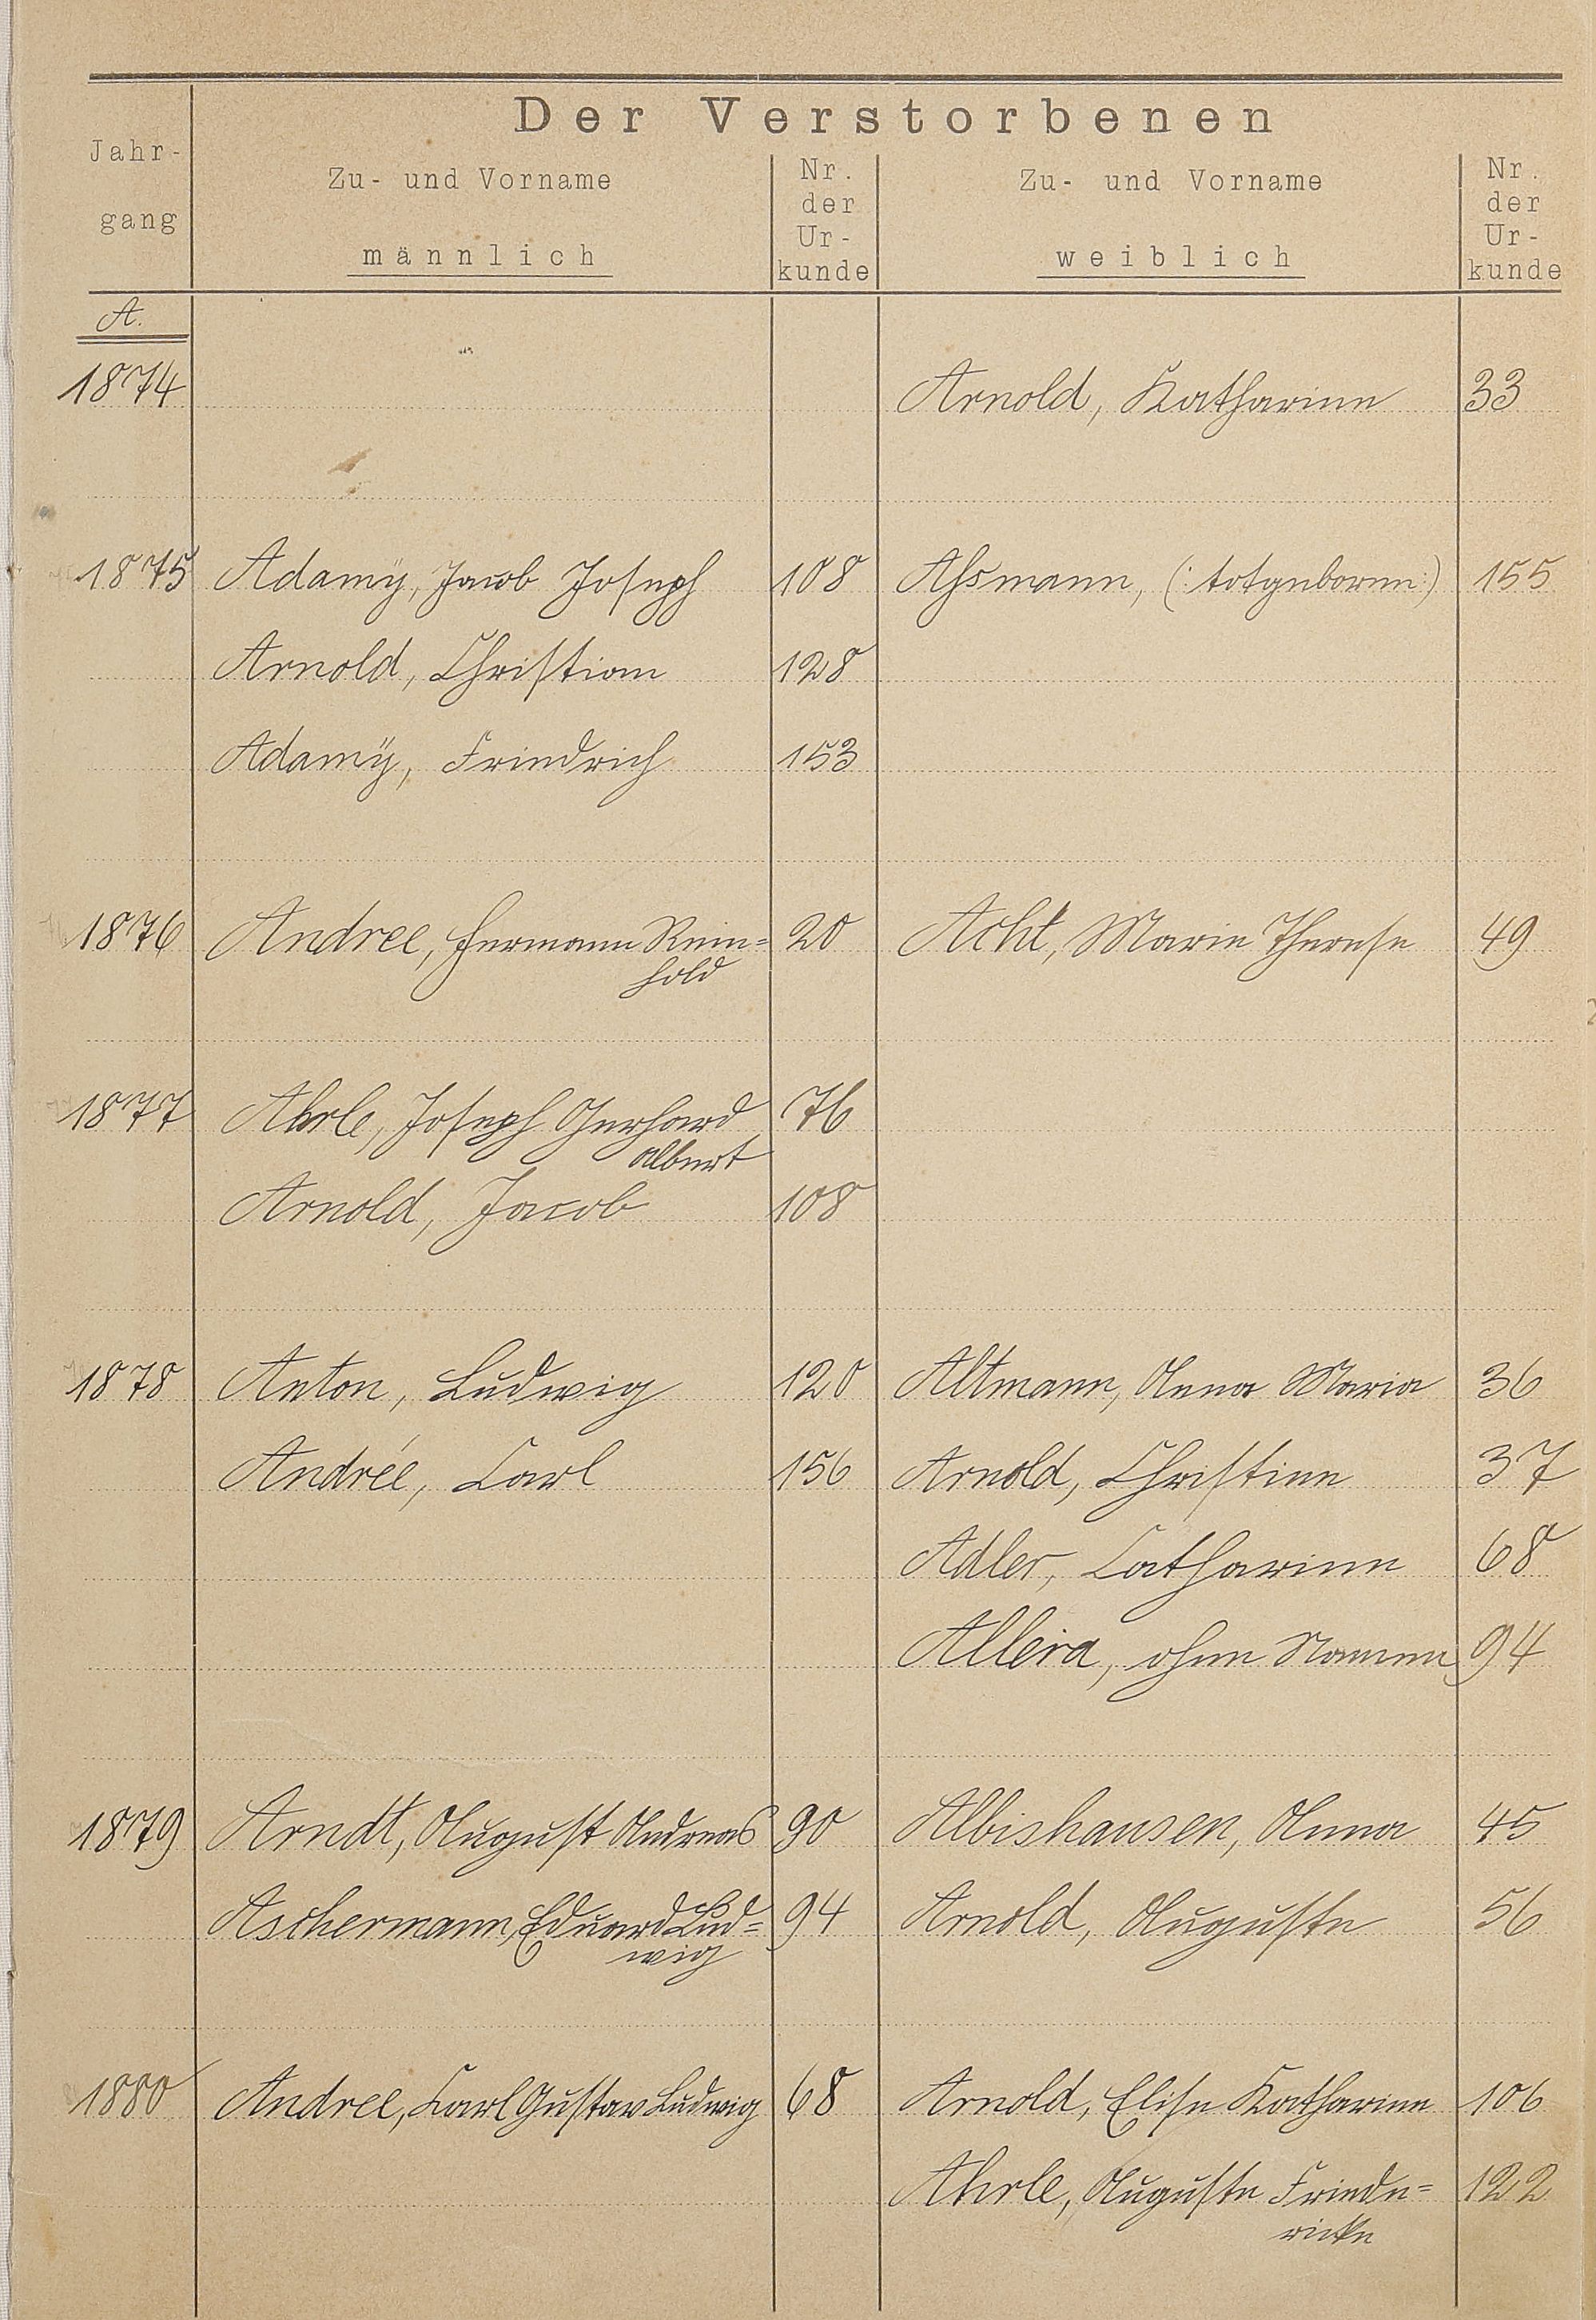 Der Verstorbenen
Jahr-
gang
Zu- und Vorname
männlich
Nr.
der
Ur-
kunde
Zu- und Vorname
weiblich
Nr.
der
Ur-
kunde
A.
1874 Arnold, Katharine 33
1875 Adamÿ, Jacob Joseph 108 Aſsmann, (: totgeboren :) 155
Arnold, Christian 128
Adamÿ, Friedrich 153
1876 Andree, Hermann Rein= 20 Acht, Marie Therese 49
hold
1877 Ahrle, Joseph Gerhard 76
Albert
Arnold, Jacob 108
1878 Anton, Ludwig 120 Altmann, Anna Maria 36
Andrée, Carl 156 Arnold, Christine 37
Adler, Catharine 68
Alleira, ohne Namen 94
1879 Arndt, August Andreas 90 Albishausen, Anna 45
Aschermann, Eduard Lud= 94 Arnold, Auguste 56
wig
1880 Andree, Carl Gustav Ludwig 68 Arnold, Elise Katharine 106
Ahrle, Auguste Friede= 122
ricke